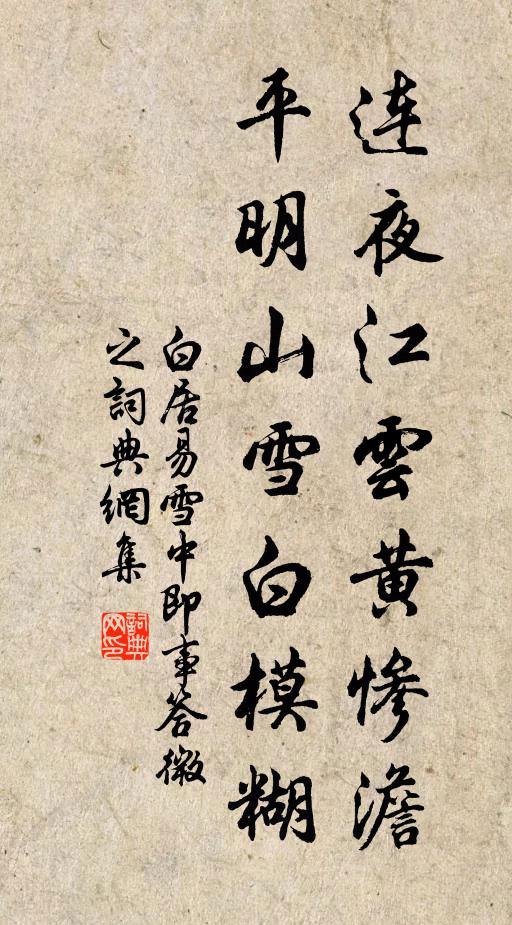 連夜江雲黃慘澹
平明山雪白模糊
白居易雪中即事答微
之詞典網集
詞典网印